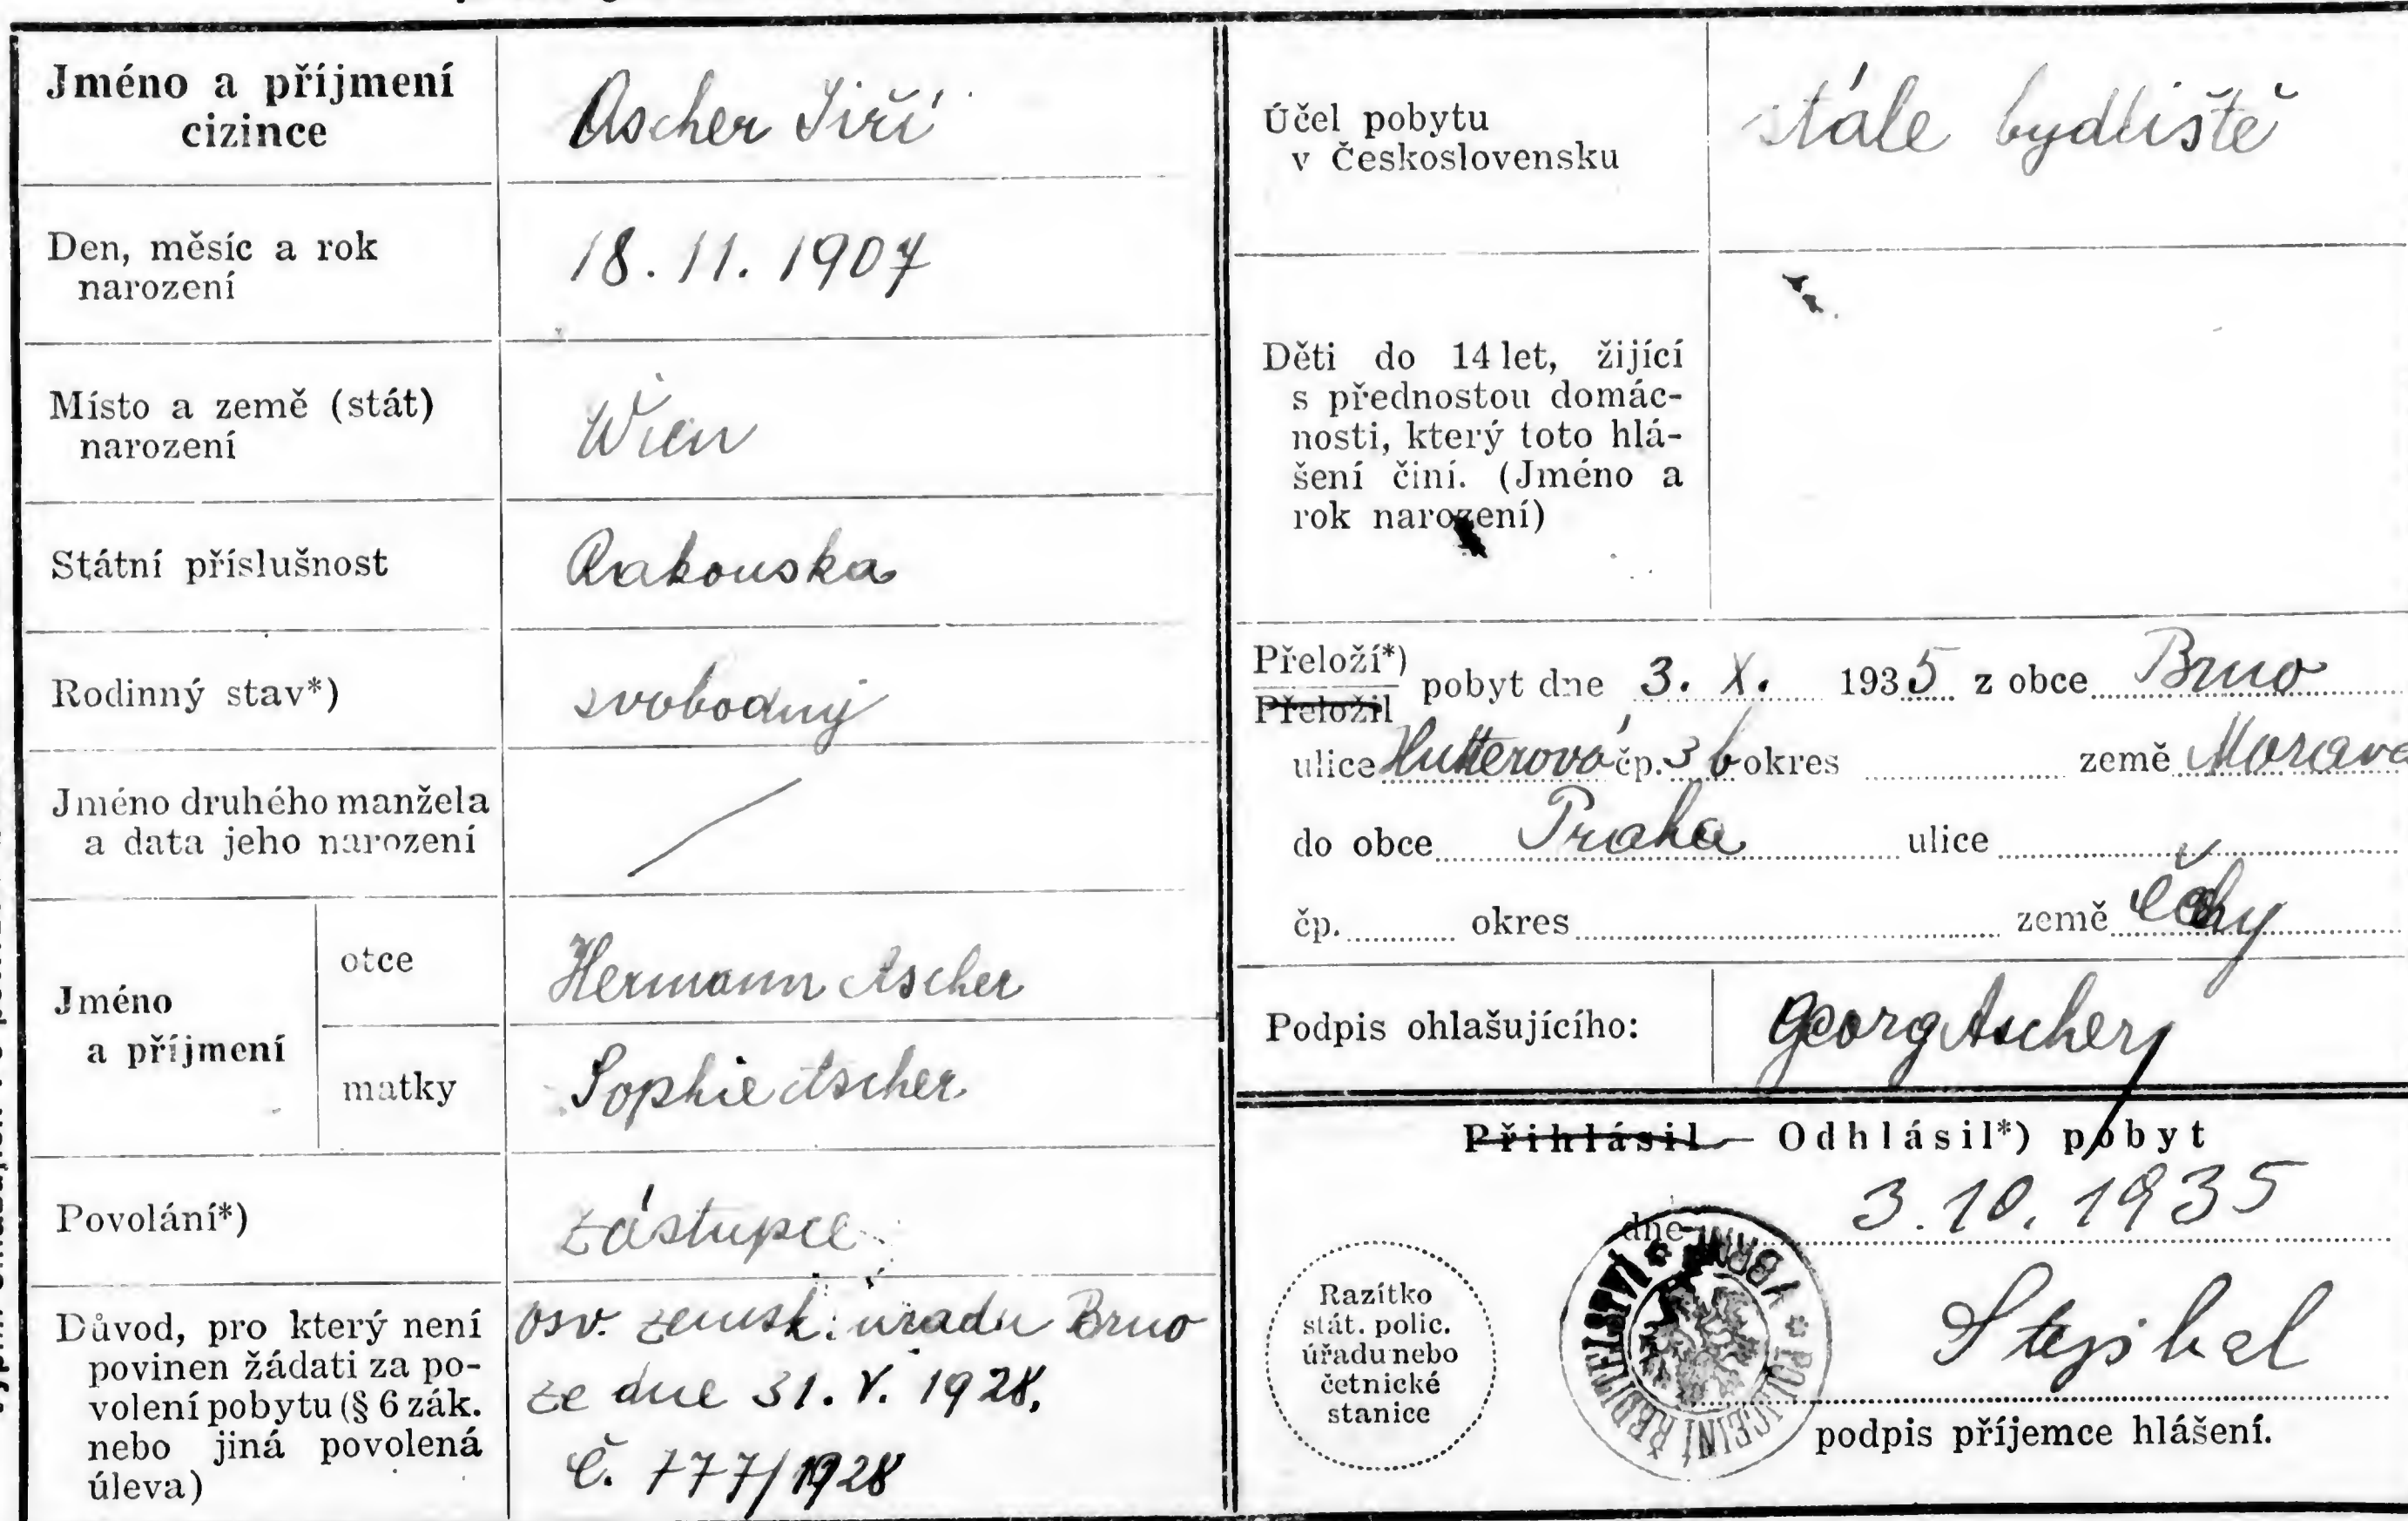 Jméno a příjmení
cizince
Ascher Jiří
Den, měsíc a rok
narození
18. 11. 1907
Místo a země (stát)
narození
Wien
Státní příslušnost
Rakouska
Rodinný stav*)
svobodný
Jméno druhého manžela
a data jeho narození
Jméno
a příjmení
otce
Hermann Ascher
matky
Sophie Ascher
Povolání*)
zástupce
Důvod, pro který není
povinen žádati za po-
volení pobytu (§ 6 zák.
nebo jiná povolená
úleva)
osv. zemsk. úřadu Brno
ze dne 31. V. 1928.
Č. 777/1928
Účel pobytu
v Československu
stálé bydliště
Děti do 14 let, žijící
s přednostou domác-
nosti, který toto hlá-
šení činí. (Jméno a
rok narození)
Přeloží*)
Přeložil
pobyt dne 3. X. 1935 z obce Brno
ulice Hutterova čp. 3 b okres země Morava
do obce Praha ulice
čp. okres země Čechy
Podpis ohlašujícího:
Georg Ascher
Přihlásil — Odhlásil*) pobyt
dne 3. 10. 1935
Razítko
stát. polic.
úřadu nebo
četnické
stanice
POLICEJNÍ ŘEDITELSTVÍ V BRNĚ
podpis příjemce hlášení.